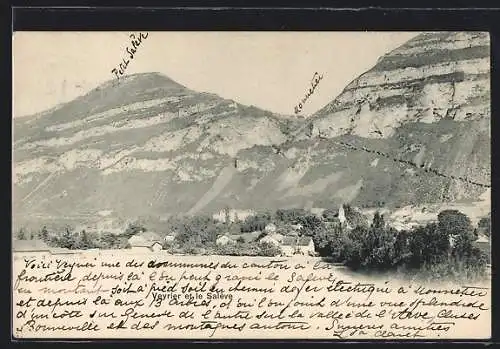 Petit Salève
Monnetier
Veyrier et le Salève
Voici Veyrier une des communes du canton la plus
frontière depuis la on peut grav le Salève
en montant soit à pied soit en chemin de fer électrique à Monnetier
et depuis là aux 3 arbres, d'où l'on jouit d'une vue splendide
d'un côté sur Genève de l'autre sur la vallée de l'Arve Cluses
Bonneville et des montagnes autour. amitiés